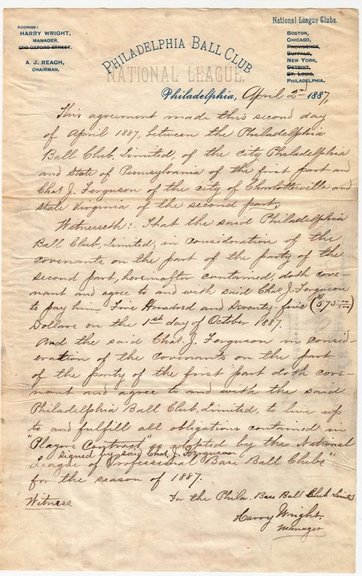 ADDRESS:
HARRY WRIGHT,
MANAGER,
1710 OXFORD STREET.
A. J. REACH,
CHAIRMAN.
PHILADELPHIA BALL CLUB
NATIONAL LEAGUE.
National League Clubs.
BOSTON,
CHICAGO,
PROVIDENCE,
BUFFALO,
NEW YORK,
DETROIT,
ST. LOUIS,
PHILADELPHIA.
Philadelphia, April 2nd 1887,
This agreement made this second day
of April 1887, between the Philadelphia
Ball Club, Limited, of the city Philadelphia
and State of Pennsylvania of the first part and
Chas J. Ferguson of the city of Charlottesville and
state Virginia of the second part,
Witnesseth: That the said Philadelphia
Ball Club, Limited, in consideration of the
covenants on the part of the party of the
second part, hereinafter contained, doth cove
nant and agree to and with said Chas J. Ferguson
to pay him Five Hundred and Seventy five ($575
Dollars on the 1st day of October 1887.
And the said Chas. J. Ferguson in consid-
eration of the covenants on the part
of the party of the first part doth cove-
nant and agree to and with the said
Philadelphia Ball Club, Limited, to live up
to and fulfill all obligations contained in
"Players Contract" as adopted by the National
signed by said Chas. J. Ferguson
League of Professional Base Ball Clubs"
for the season of 1887.
Witness
For the Phila Base Ball Club Limited
Harry Wright,
Manager